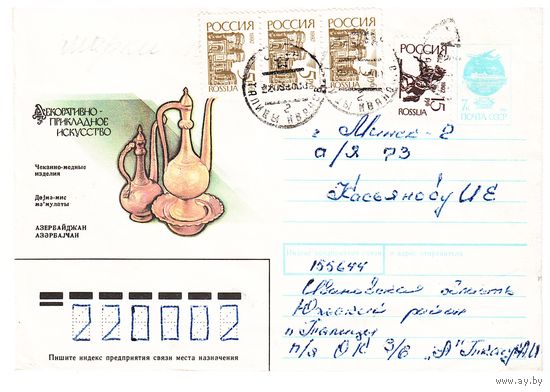 РОССИЯ РОССИЯ РОССИЯ РОССИЯ
ROSSIJA ROSSIJA ROSSIJA
15 ROSSIJA
7к ПОЧТА СССР
ДЕКОРАТИВНО-
ПРИКЛАДНОЕ
ИСКУССТВО
Чеканно-медные
изделия
Дөјмә-мис
мә'мулаты
АЗЕРБАЙДЖАН
АЗӘРБАЈЧАН
г Минск-2
а/я 73
Касьяносу И Е
Индекс и адрес отправителя
155644
Ивановская область
Южский район
п Талицы
п/я ОК 3/6 "А"
220002
Пишите индекс предприятия связи места назначения
www.ay.by